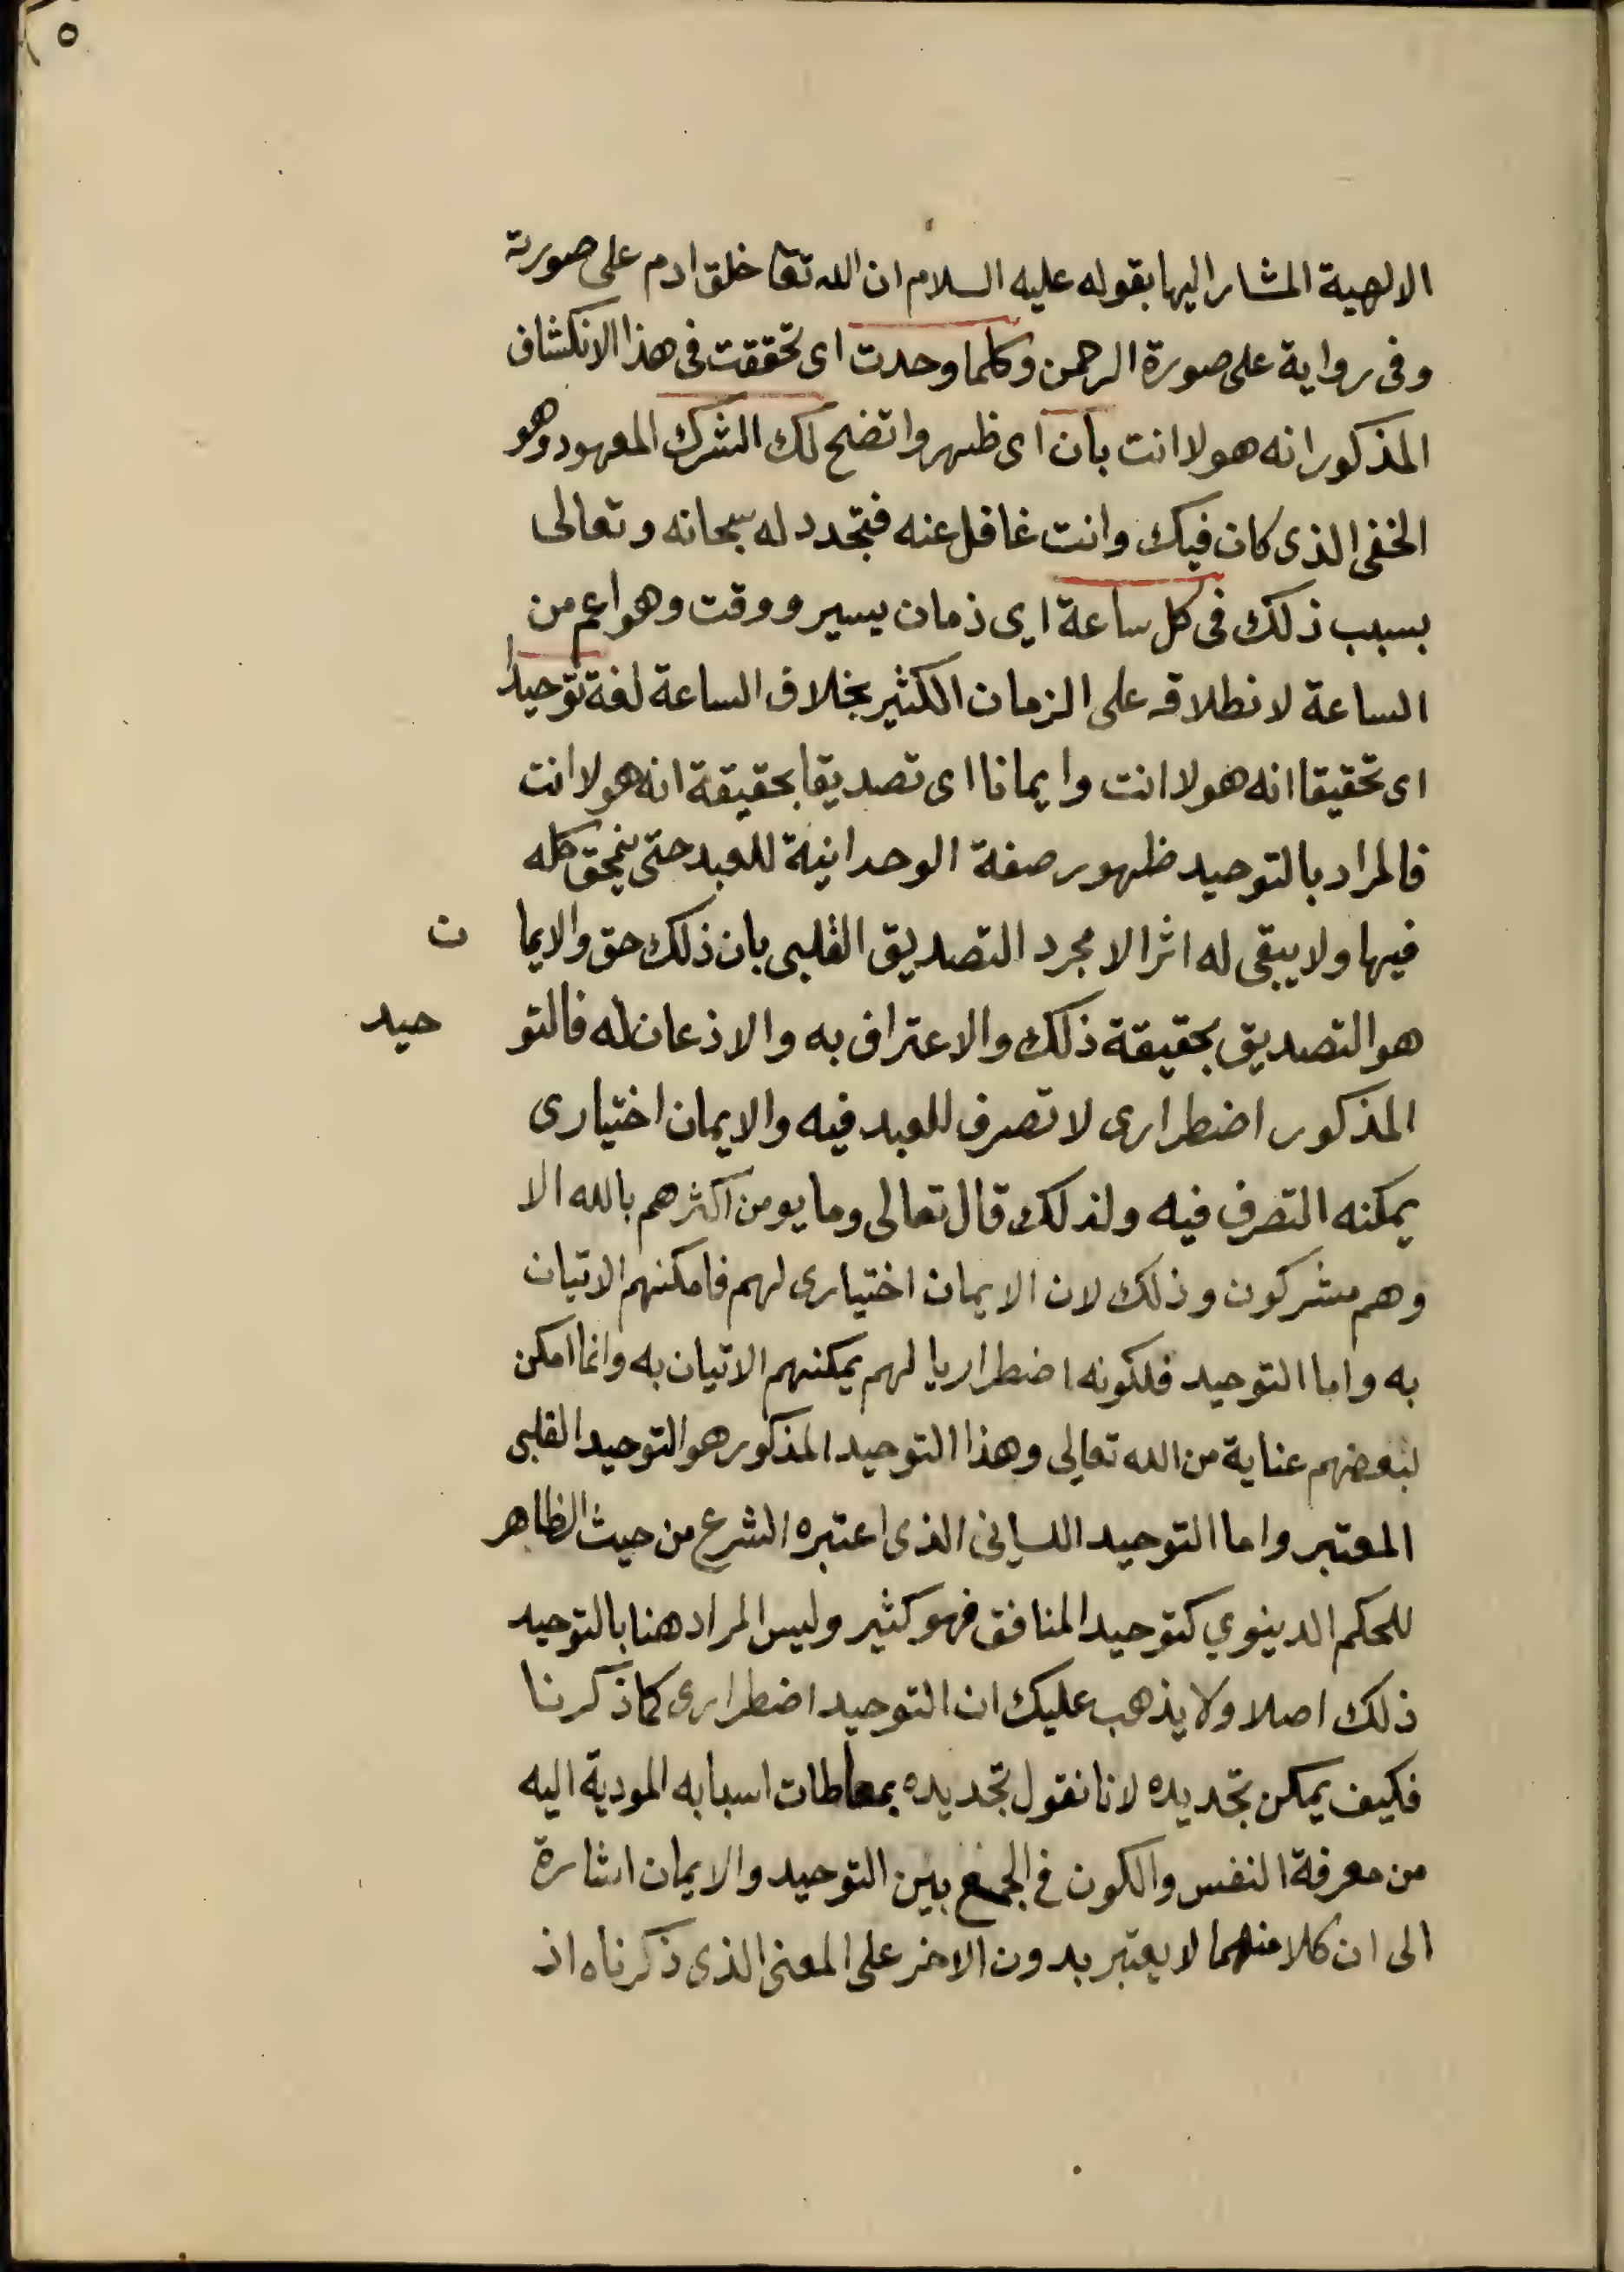 ٥
الالهية المشار اليها بقوله عليه السلام ان الله تعا خلق ادم على صورته
وفى رواية على صورة الرحمن وكلما وحدت اى تحققت فى هذا الانكشاف
المذكور انه هو لا انت بان اى ظهر واتضح لك الشرك المعهود وهو
الخفى الذى كان فيك وانت غافل عنه فتجدد له سبحانه وتعالى
بسبب ذلك فى كل ساعة اى زمان يسير ووقت وهو اعم من
الساعة لانطلاقه على الزمان الكثير بخلاف الساعة لغة توحيدا
اى تحقيقا انه هو لا انت وايمانا اى تصديقا بحقيقة انه هو لا انت
فالمراد بالتوحيد ظهور صفة الوحدانية للعبد حتى ينمحق كله
فيها ولا يبقى له اثرا الا مجرد التصديق القلبى بان ذلك حق والايما ن
هو التصديق بحقيقة ذلك والاعتراف به والاذعان له فالتو حيد
المذكور اضطرارى لا تصرف للعبد فيه والايمان اختيارى
يمكنه التصرف فيه ولذلك قال تعالى وما يومن اكثرهم بالله الا
وهم مشركون وذلك لان الايمان اختيارى لهم فامكنهم الاتيان
به واما التوحيد فلكونه اضطراريا لهم يمكنهم الاتيان به وانما امكن
لبعضهم عناية من الله تعالى وهذا التوحيد المذكور هو التوحيد القلبى
المعتبر واما التوحيد اللسانى الذى اعتبره الشرع من حيث الظاهر
للحكم الدينوي كتوحيد المنافق فهو كثير وليس المراد هنا بالتوحيد
ذلك اصلا ولا يذهب عليك ان التوحيد اضطرارى كما ذكرنا
فكيف يمكن تجديده لانا نقول تجديده بمعاطات اسبابه المودية اليه
من معرفة النفس والكون فى الجمع بين التوحيد والايمان اشارة
الى ان كلا منهما لا يعتبر بدون الاخر على المعنى الذى ذكرناه اذ